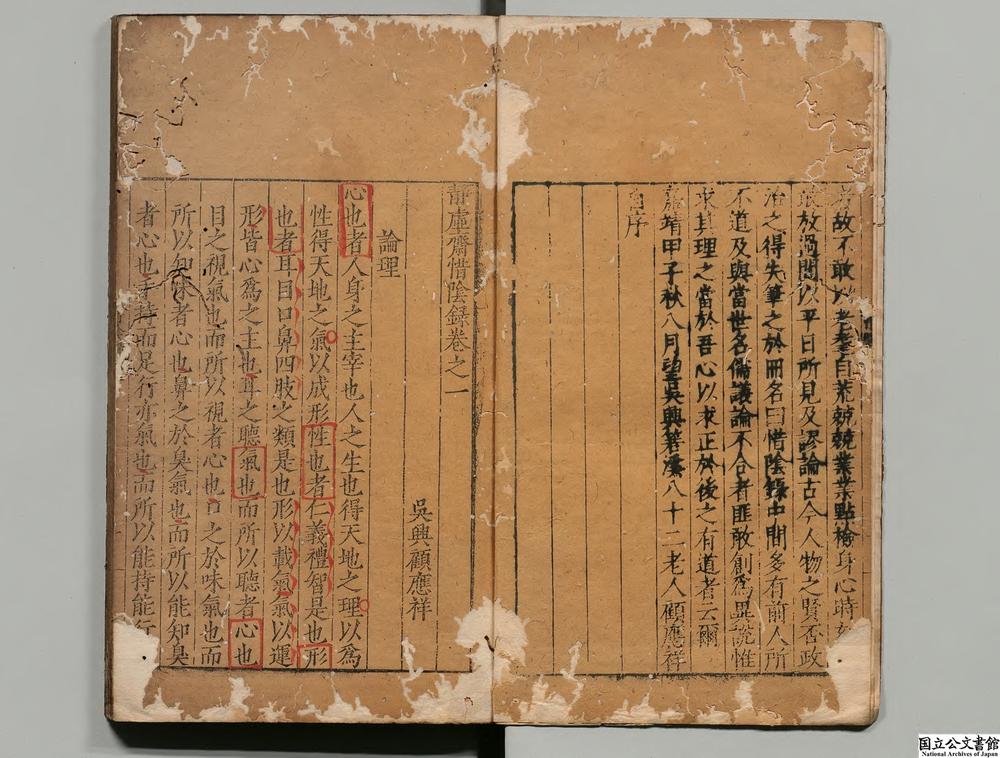 故不敢以老耄自荒兢兢業業點檢身心時
放過間以平日所見及謬論古今人物之賢否政
治之得失筆之於冊名曰惜陰錄中間多有前人所
不道及與當世名儒議論不合者匪敢創為異說惟
求其理之當於吾心以求正於後之有道者云爾
嘉靖甲子秋八月望吳興箬溪八十二老人顧應祥
自序
靜虛齋惜陰錄卷之一
吳興顧應祥
論理
心也者人身之主宰也人之生也得天地之理以爲
性得天地之氣以成形性也者仁義禮智是也形
也者耳目口鼻四肢之類是也形以載氣氣以運
形皆心爲之主也耳之聽氣也而所以聽者心也
目之視氣也而所以視者心也口之於味氣也而
所以知味者心也鼻之於臭氣也而所以能知臭
者心也手持而足行亦氣也而所以能持能行
国立公文書館
National Archives of Japan